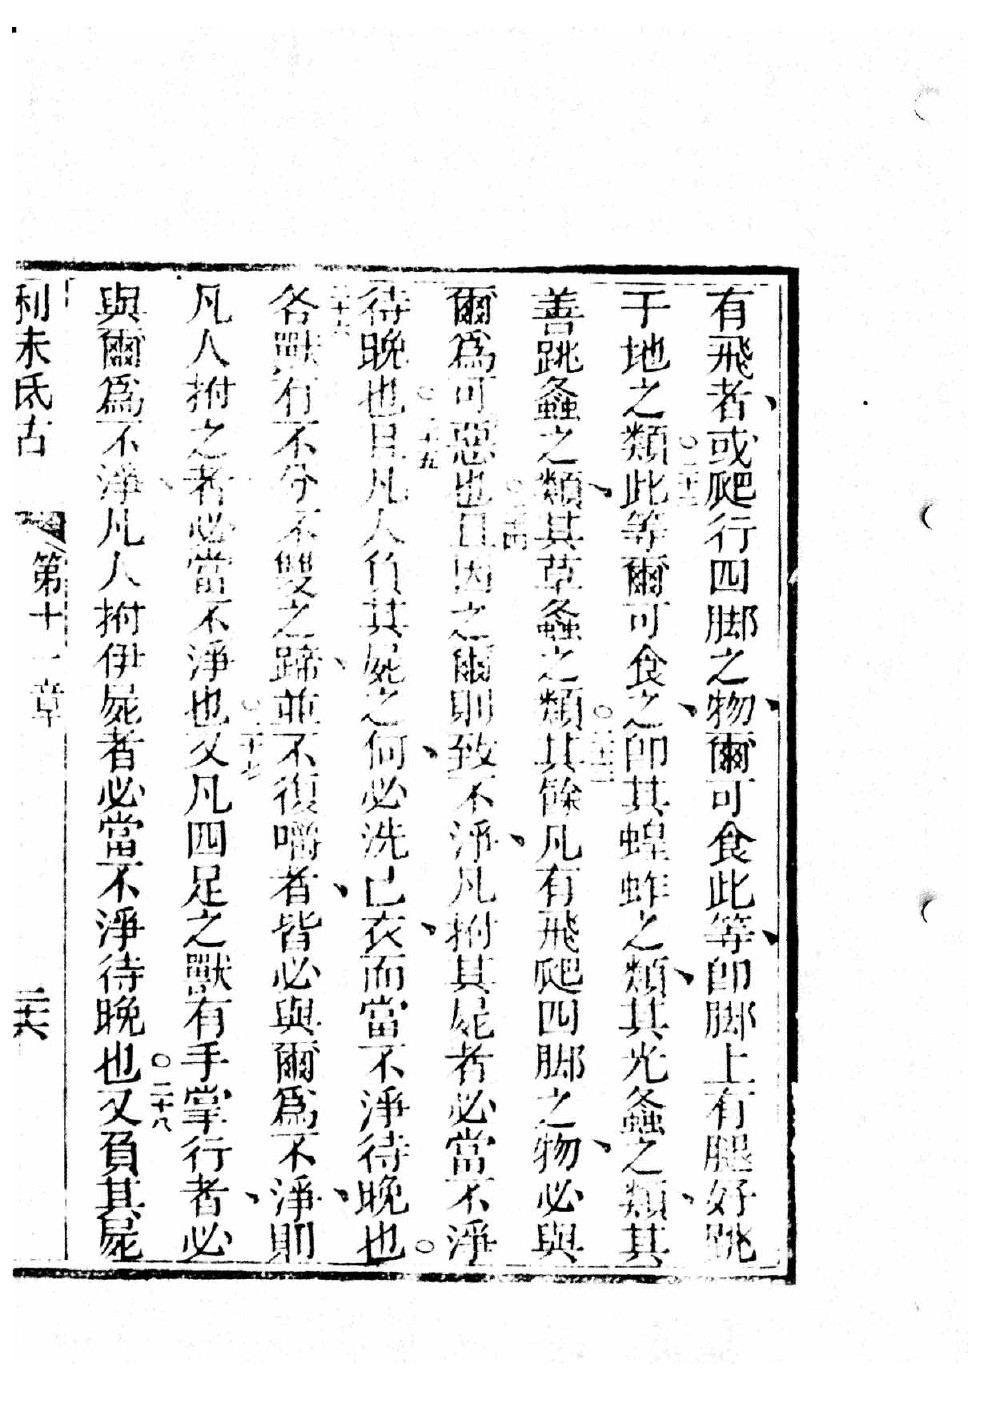 有飛者或爬行四脚之物爾可食此等卽脚上有腿好跳
于地之類○二十二此等爾可食之卽其蝗蚱之類其光螽之類其
善跳螽之類其草螽之類○二十三其餘凡有飛爬四脚之物必與
爾爲可惡也○二十四且因之爾則致不淨凡拊其屍者必當不淨
待晚也○二十五且凡人負其屍之何必洗己衣而當不淨待晚也○
二十六各獸有不分不雙之蹄並不復嚼者皆必與爾爲不淨則
凡人拊之者必當不淨也○二十七又凡四足之獸有手掌行者必
與爾爲不淨凡人拊伊屍者必當不淨待晚也○二十八又負其屍
利未氏古 第十一章 二十六